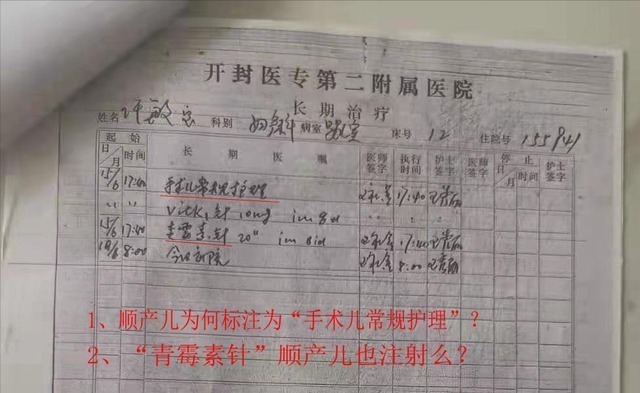 开封医专第二附属医院
长期治疗
姓名 许敏 科别 妇产科 病室 床号 12 住院号 155941
起始 长期医嘱 医师签字 执行时间 护士签字 医师签字 停止 护士签字
日/月 时间 日/月 时间
15/6 17:40 手术儿常规护理 17:40
〃 〃 Vitk1针 10mg im Qd
15/6 17:40 青霉素针 20" im Bid 17:40
18/6 8:00 今日出院 8:00
1、顺产儿为何标注为“手术儿常规护理”？
2、“青霉素针”顺产儿也注射么？